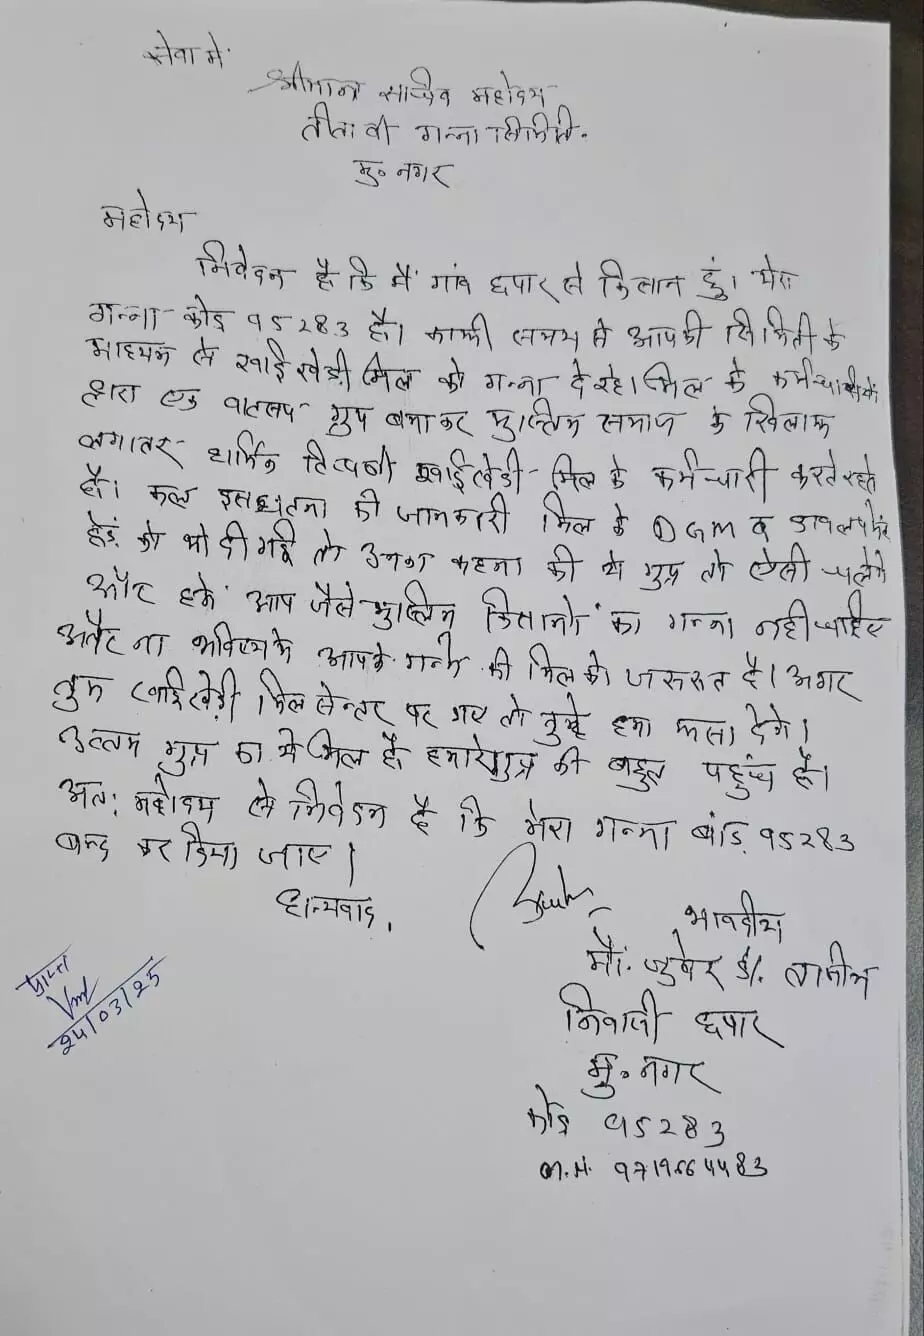 सेवा में
श्रीमान सचिव महोदय
तीतावी गन्ना समिति.
मु॰ नगर
महोदय
निवेदन है कि मैं गांव छपार से किसान हुं। मेरा
गन्ना कोड 95283 है। काफी समय से आपकी समिती के
माध्यम से खाईखेडी मिल को गन्ना दे रहे। मिल के कर्मचारियों
द्वारा एक वाटसप ग्रुप बनाकर मुस्लिम समाज के खिलाफ
लगातर धार्मिक टिप्पणी खाईखेडी मिल के कर्मचारी करते रहते
है। कल इस घटना की जानकारी मिल के DGM व
हेड को भी दी गई तो उनका कहना की ये ग्रुप तो ऐसी चलेगे
और हमें आप जैसे मुस्लिम किसानों का गन्ना नही चाहिए
और ना भविष्य के आपके गन्ने की मिल को जरूरत है। अगर
तुम खाईखेडी मिल सेन्टर पर गए तो तुम्हे हम फसा देगे।
उत्तम ग्रुप का ये मिल है। हमारे ग्रुप की बहुत पहुंच है।
अतः महोदय से निवेदन है कि मेरा गन्ना बांड 95283
बन्द कर दिया जाए।
धन्यवाद.
भावदीय
मौ. जुबेर S/.
निवासी छपार
मु॰ नगर
कोड 95283
प्राप्त
24/03/25